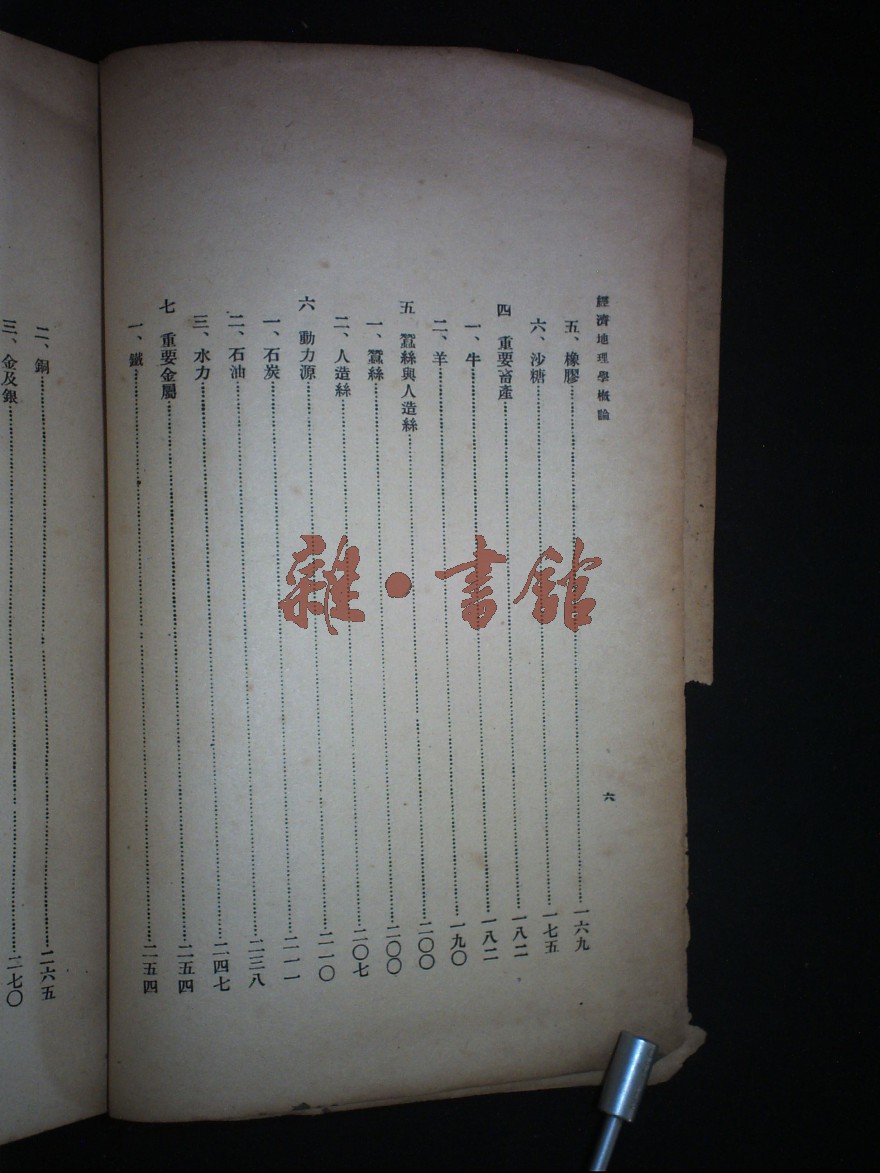 經濟地理學概論
六
五、橡膠……一六九
六、沙糖……一七五
四 重要畜產……一八二
一、牛……一八二
二、羊……一九〇
五 蠶絲與人造絲……二〇〇
一、蠶絲……二〇〇
二、人造絲……二〇七
六 動力源……二一〇
一、石炭……二一一
二、石油……二三八
三、水力……二四七
七 重要金屬……二五四
一、鐵……二五四
二、銅……二六五
三、金及銀……二七〇
雜·書館